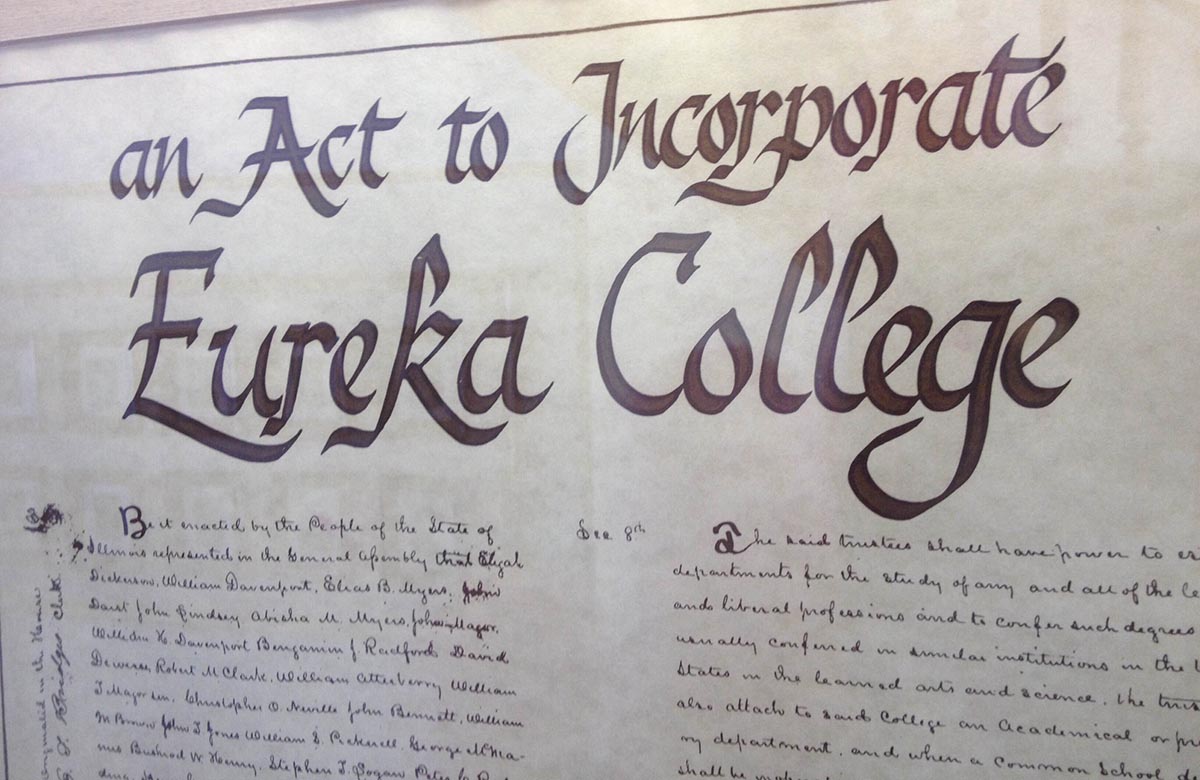 an Act to Incorporate
Eureka College
Be it enacted by the People of the State of
Illinois represented in the General Assembly that Elijah
Dickenson, William Davenport, Elias B. Myers, John
Darst John Lindsey Abisha M. Myers, John Major,
William H. Davenport Benjamin J Radford David
Deweese Robert M Clark, William Atterberry William
T Major sen, Christopher O. Neville John Bennett, William
M Brown John T Jones William S. Pickrell, George McMa-
nus Bushrod W Henny, Stephen T. Gogan Peter
Sec 8th
The said trustees shall have power to es
departments for the study of any and all of the le
and liberal professions and to confer such degrees
usually conferred in similar institutions in the
States in the learned arts and science, the trus
also attach to said College an Academical or pr
ry department, and when a Common School
shall be
in the House
Clerk